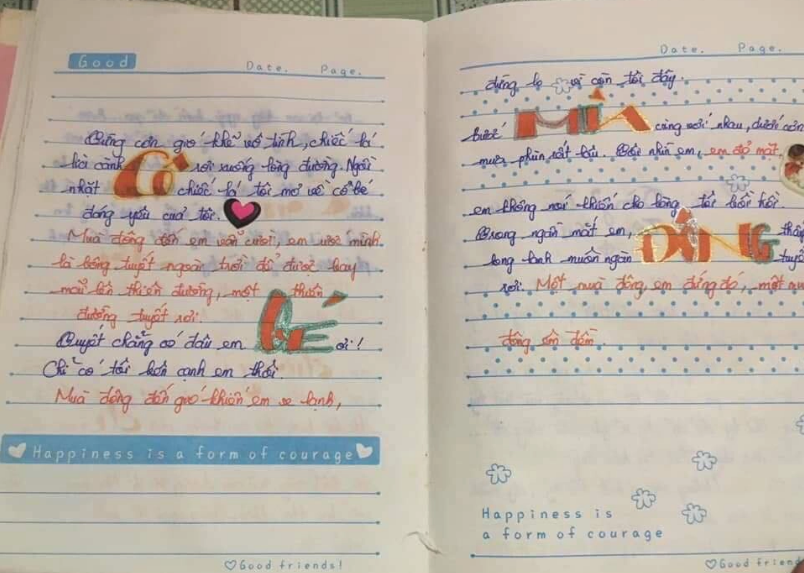 Good
Date. Page.
Từng cơn gió khẽ vô tình, chiếc lá
lìa cành rơi xuống lòng đường. Ngồi
nhặt chiếc lá tôi mơ về cô bé
đáng yêu của tôi.
CÔ
Mùa đông đến em vẫn cười, em ước mình
là bông tuyết ngoài trời để được bay
mãi lên thiên đường, một thiên
đường tuyết rơi.
Tuyết chẳng có đâu em BÉ ơi!
Chỉ có tôi bên cạnh em thôi.
Mùa đông đến gió khiến em se lạnh,
Happiness is a form of courage
Good friends!
Date. Page.
đừng lo vì còn tôi đây.
bước MÙA cùng với nhau, dưới cơn
mưa phùn rất lâu. Tôi nhìn em, em đỏ mặt,
em không nói khiến cho lòng tôi bồi hồi.
Trong ngần mắt em, ĐÔNG
long lanh muôn ngàn
rơi. Một mùa đông, em đứng đó, một
đông êm đềm.
Happiness is
a form of courage
Good